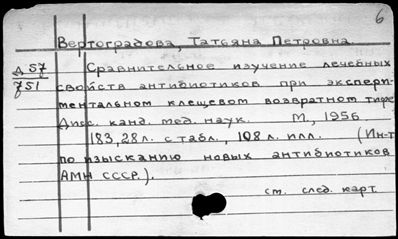 6
Вертоградова, Татьяна Петровна.
Д 57
751
Сравнительное изучение лечебных
свойств антибиотиков при экспери-
ментальном клещевом возвратном тифе
Дисс. канд. мед. наук. М., 1956.
183, 28 л. с табл., 108 л. илл. (Ин-т
по изысканию новых антибиотиков
АМН СССР.).
см. след. карт.